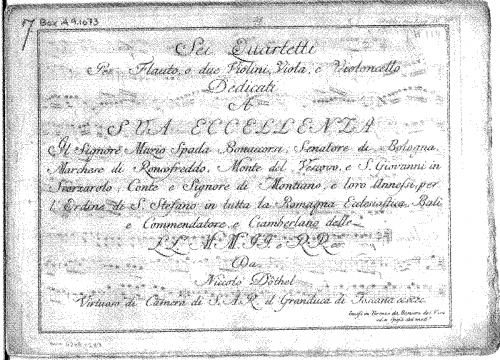 7 Box A 9.1073
Sei Quartetti
Per Flauto, o due Violini, Viola, e Violoncello
Dedicati
A
SUA ECCELLENZA
Il Signore Mario Spada Bonaccorsi, Senatore di Bologna,
Marchese di Roncofreddo, Monte del Vescovo, e S. Giovanni in
Conte e Signore di Montiano, e loro Annessi, per
l'Ordine di S. Stefano in tutta la Romagna Ecclesiastica Balì
e Commendatore e Ciamberlano delle
LL. MM. II. e RR.
Da
Niccolò Dôthel
Virtuoso di Camera di S.A.R. il Granduca di Toscana
in Firenze da